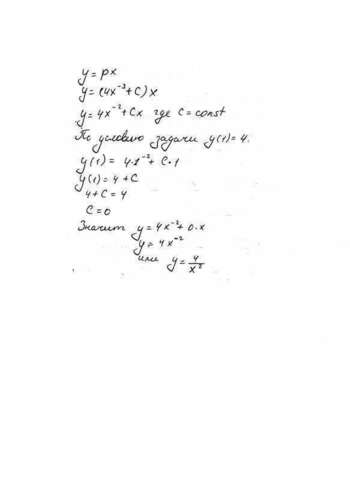 y = px
y = (4x⁻³ + C) x
y = 4x⁻² + Cx где C = const
По условию задачи y(1) = 4.
y(1) = 4·1⁻² + C·1
y(1) = 4 + C
4 + C = 4
C = 0
Значит y = 4x⁻² + 0·x
y = 4x⁻²
или y = 4/x²